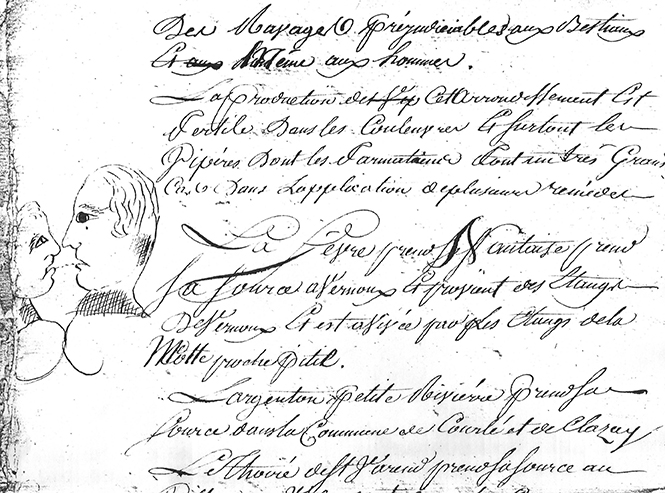 Des Ravages préjudiciables aux Bestiaux
Et aux Même aux hommes.
La production des Vip Cet Arrondissement Est
Fertile Dans les Couleuvres Et surtout les
Vipéres Dont les font un très Grand
Cas Dans L'application de plusieurs remèdes
La Sèvre prend Nantaise prend
Sa Source a Vernoux Et provient des Etangs
De Vernoux Et est par les Etangs de la
Motte proche
L'argenton petite Rivière prend sa
Source dans la Commune de Courlé et de Clazay
Le Thoüé de St Varend prend sa source au